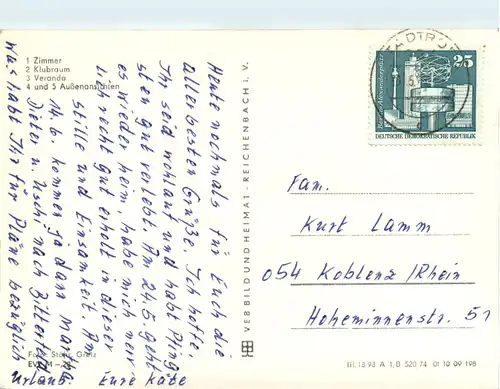 1 Zimmer
2 Klubraum
3 Veranda
4 und 5 Außenansichten
Heute nochmals für Euch die
allerbesten Grüße. Ich hoffe,
Ihr seid wohlauf und habt Pfing-
sten gut verlebt. Am 24.5. geht
es wieder heim, habe mich nerv-
lich recht gut erholt in dieser
Stille und Einsamkeit. Am
14.6. kommen ja dann Martha
Dieter u. Uschi nach Bitterfeld
Was habt Ihr für Pläne bezüglich
Urlaub Eure Käte
Foto: Greiz
VEB BILD UND HEIMAT · REICHENBACH i. V.
STADTRO
25
Berlin, Alexanderplatz
DEUTSCHE DEMOKRATISCHE REPUBLIK
Fam.
Kurt Lamm
054 Koblenz/Rhein
Hoheminnenstr. 51
III 18 93 A 1, B 520 74 01 10 09 198